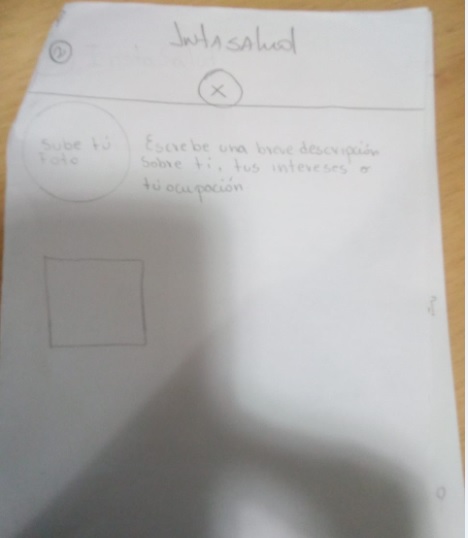 IntASAlud
2
X
Sube tú
foto
Escribe una breve descripción
sobre ti, tus intereses o
tú ocupación